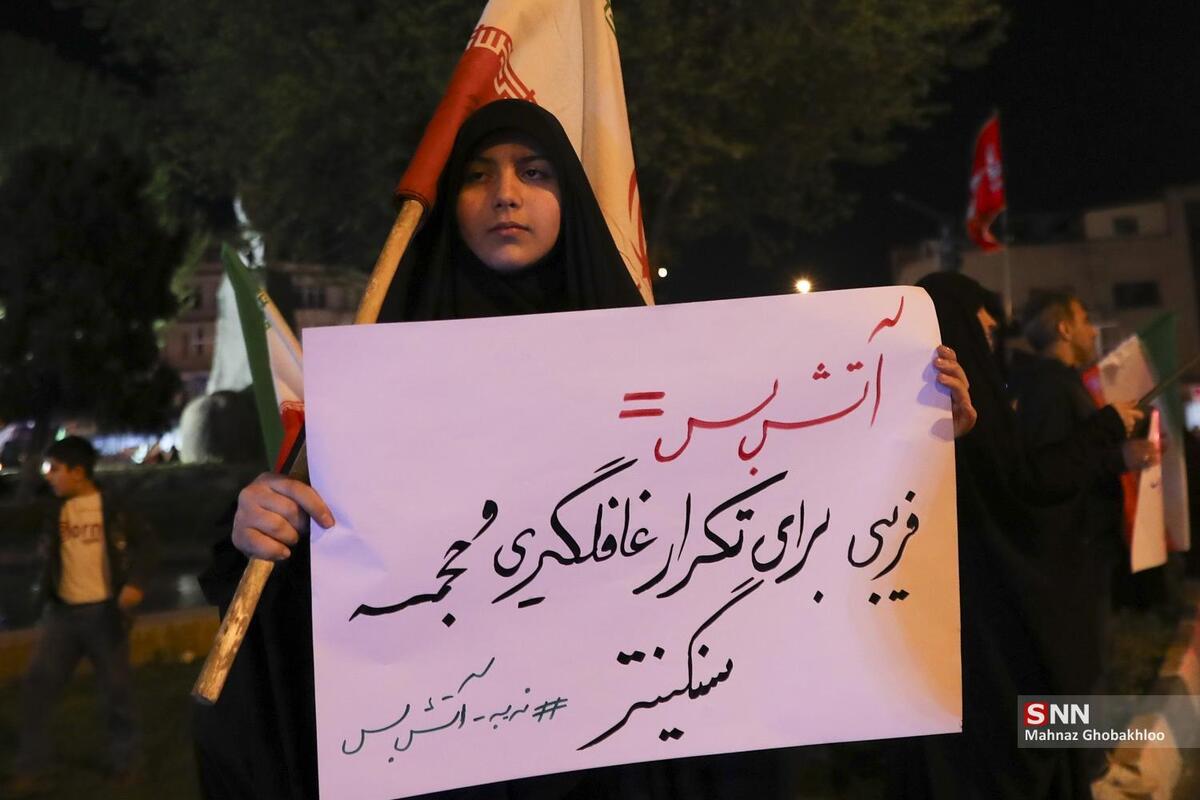 آتش بس =
فریبی برای تکرار غافلگیری و هجمه
سنگین‌تر
#نه_به_آتش_بس
SNN
Mahnaz Ghobakhloo